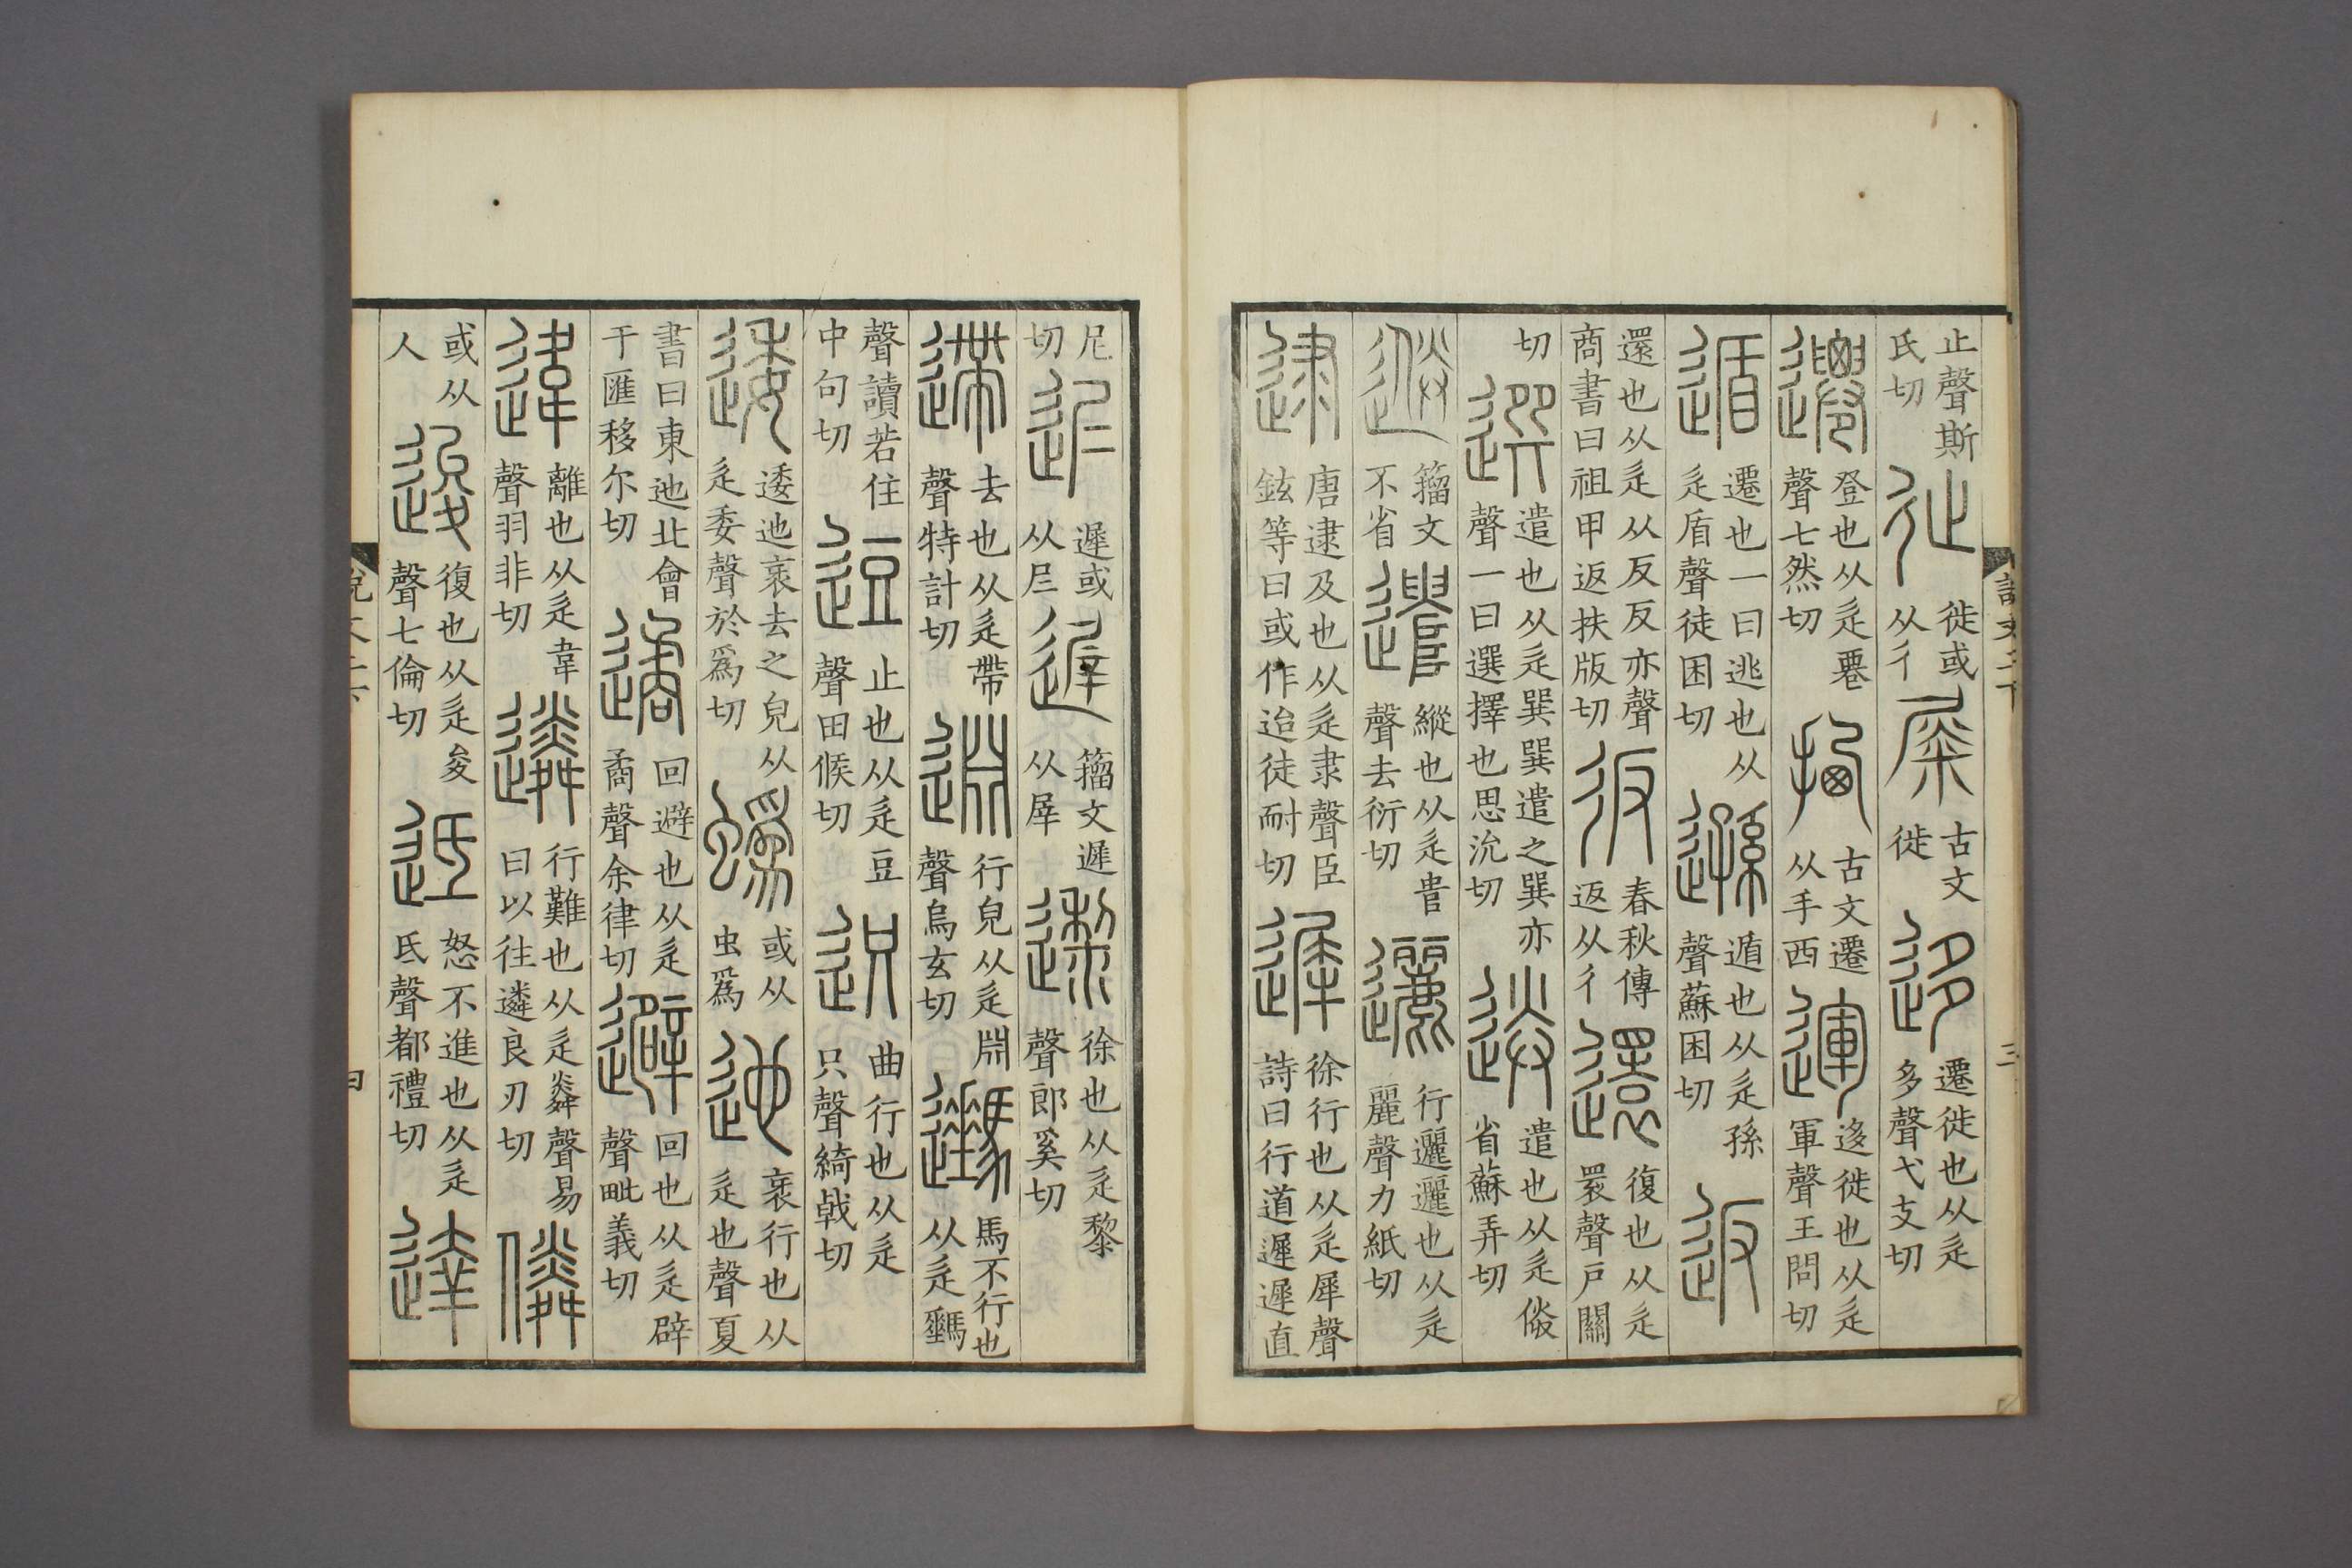 止聲斯氏切 𢓊 徙或从彳 屎 古文徙 迻 遷徙也从辵多聲弋支切
遷 登也从辵䙴聲七然切 拪 古文遷从手西 運 迻徙也从辵軍聲王問切
遁 遷也一曰逃也从辵盾聲徒困切 遜 遁也从辵孫聲蘇困切 返
還也从辵从反反亦聲商書曰祖甲返扶版切 仮 春秋傳返从彳 還 復也从辵瞏聲戶關
切 選 遣也从辵巽巽遣之巽亦聲一曰選擇也思沇切 送 遣也从辵㑞省蘇弄切
籀文不省 遣 縱也从辵𠳋聲去衍切 邐 行邐邐也从辵麗聲力紙切
逮 唐逮及也从辵隶聲臣鉉等曰或作迨徒耐切 遲 徐行也从辵犀聲詩曰行道遲遲直
說文二下
三
尼切 迡 遲或从𡰥 遟 籀文遲从屖 邌 徐也从辵黎聲郎奚切
遰 去也从辵帶聲特計切 行皃从辵𣶒聲烏玄切 馬不行也从辵𩡧
聲讀若住中句切 逗 止也从辵豆聲田候切 迟 曲行也从辵只聲綺戟切
逶 逶迆衺去之皃从辵委聲於爲切 蟡 或从虫爲 迆 衺行也从辵也聲夏
書曰東迆北會于匯移尒切 遹 回避也从辵矞聲余律切 避 回也从辵辟聲毗義切
違 離也从辵韋聲羽非切 遴 行難也从辵粦聲易曰以往遴良刃切 僯
或从人 逡 復也从辵夋聲七倫切 䢑 怒不進也从辵氐聲都禮切 達
說文二下
四